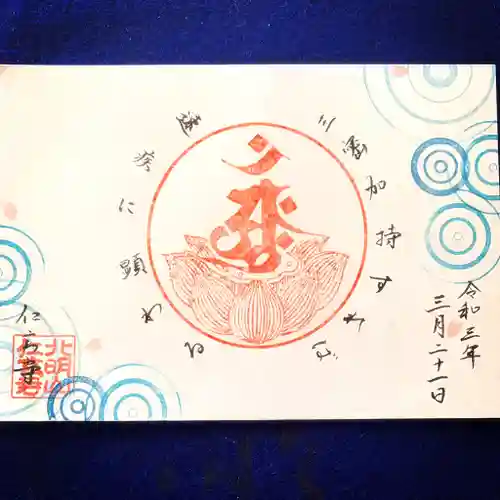 三密加持すれば
速疾に顕わる
令和三年
三月二十一日
北明山